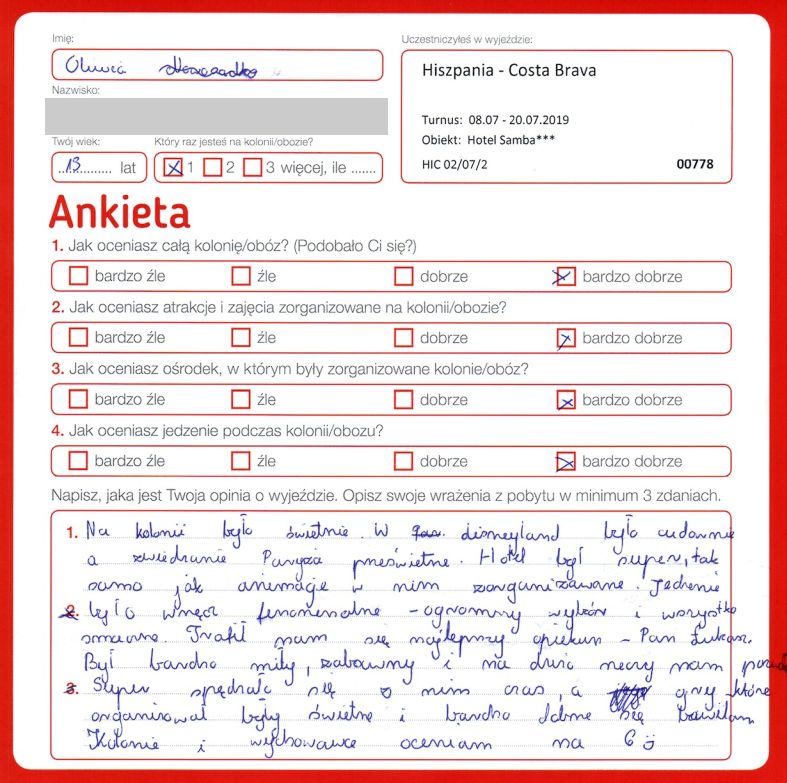 Imię:
Uczestniczyłeś w wyjeździe:
Oliwia
Hiszpania - Costa Brava
Nazwisko:
Turnus: 08.07 - 20.07.2019
Obiekt: Hotel Samba***
HIC 02/07/2 00778
Twój wiek: Który raz jesteś na kolonii/obozie?
13 lat 1 2 3 więcej, ile .......
Ankieta
1. Jak oceniasz całą kolonię/obóz? (Podobało Ci się?)
bardzo źle źle dobrze bardzo dobrze
2. Jak oceniasz atrakcje i zajęcia zorganizowane na kolonii/obozie?
bardzo źle źle dobrze bardzo dobrze
3. Jak oceniasz ośrodek, w którym były zorganizowane kolonie/obóz?
bardzo źle źle dobrze bardzo dobrze
4. Jak oceniasz jedzenie podczas kolonii/obozu?
bardzo źle źle dobrze bardzo dobrze
Napisz, jaka jest Twoja opinia o wyjeździe. Opisz swoje wrażenia z pobytu w minimum 3 zdaniach.
1. Na kolonii było świetnie. W disneyland było cudownie
a zwiedzanie Paryża prześwietne. Hotel był super, tak
samo jak animacje w nim zorganizowane. Jedzenie
2. było wręcz fenomenalne - ogromny wybór i wszystko
smaczne. Trafił nam się najlepszy opiekun - Pan Łukasz.
Był bardzo miły, zabawny i na dużo rzeczy nam
3. Super spędzało się z nim czas, a gry które
organizował były świetne i bardzo dobrze się bawiłam
Kolonie i wychowawce oceniam na 6